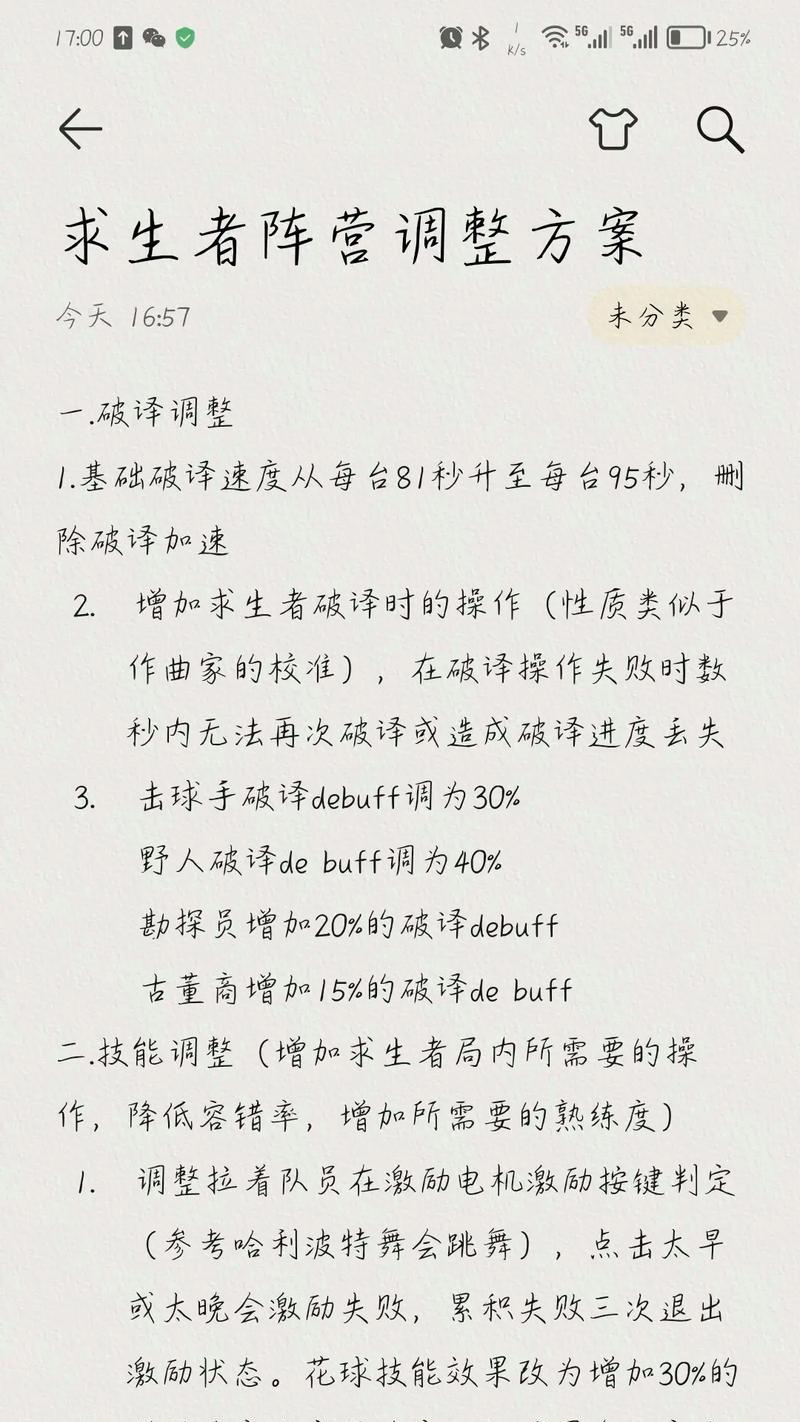 17:00
1
k/s
5G
5G
25%
求生者阵营调整方案
今天 16:57
未分类
一.破译调整
1.基础破译速度从每台81秒升至每台95秒，删
除破译加速
2. 增加求生者破译时的操作（性质类似于
作曲家的校准），在破译操作失败时数
秒内无法再次破译或造成破译进度丢失
3. 击球手破译debuff调为30%
野人破译de buff调为40%
勘探员增加20%的破译debuff
古董商增加15%的破译de buff
二.技能调整（增加求生者局内所需要的操
作，降低容错率，增加所需要的熟练度）
1. 调整拉着队员在激励电机激励按键判定
（参考哈利波特舞会跳舞），点击太早
或太晚会激励失败，累积失败三次退出
激励状态。花球技能效果改为增加30%的